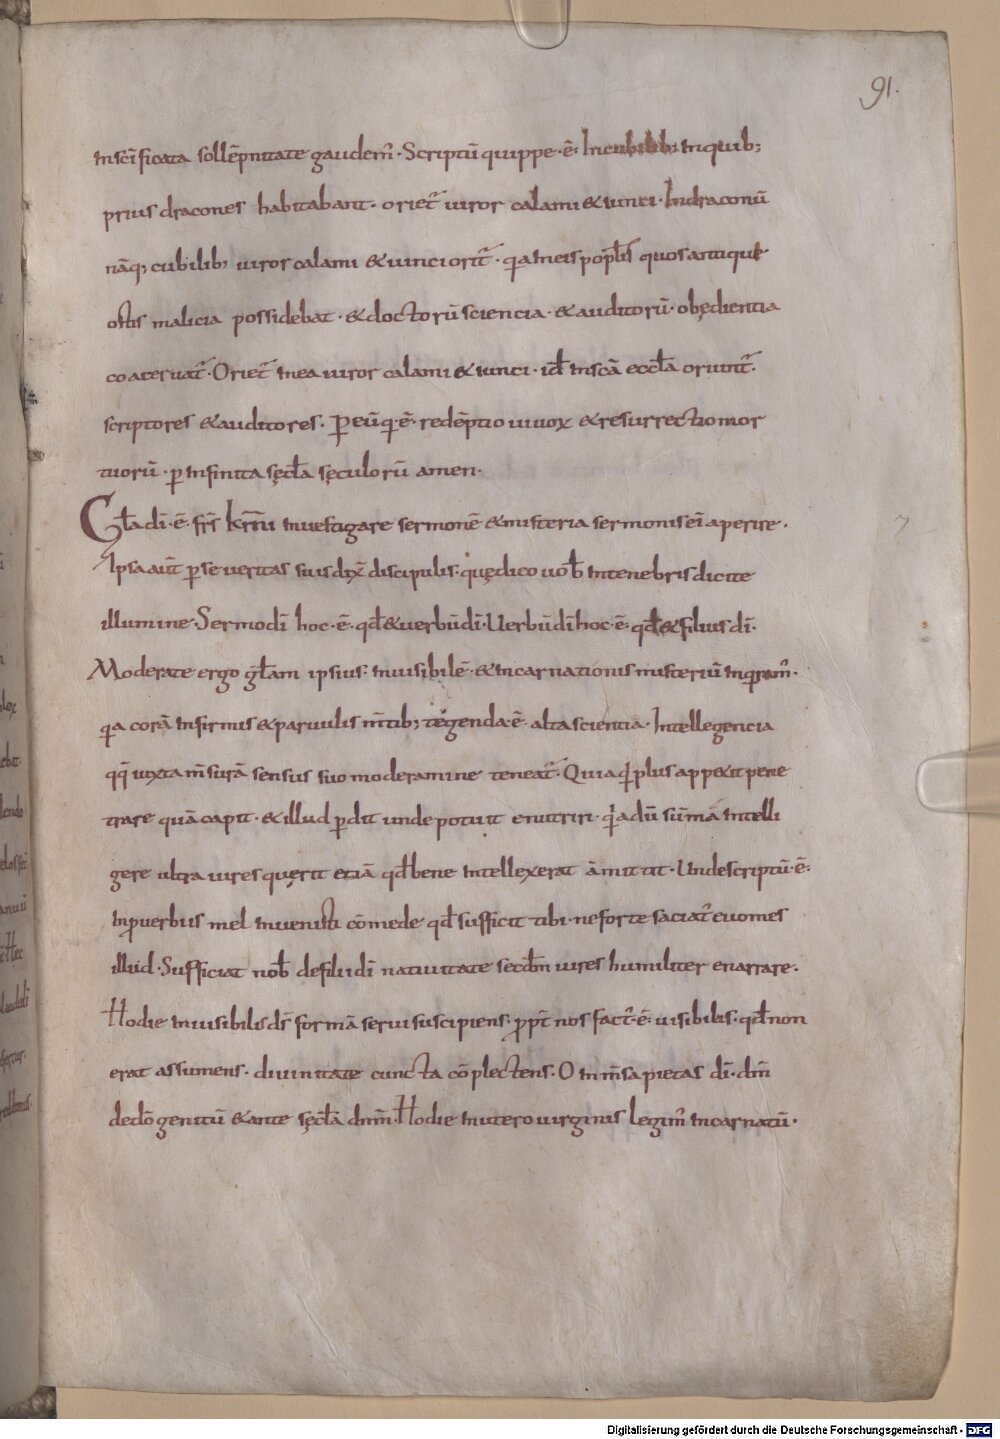 91.
insc̄ificata sollēpnitate gaudem᷒. Scriptū quippe. ē. Incubilib; inquib;
prius dracones habitabant. oriet᷒ uiror calami &iunci. Indraconū
nāq; cubilib; uiror calami &uinciorit᷒. qa ineis pop̄lis quosantiquꝰ
ostis malicia possidebat. &doctorū sciencia. &auditorū. obędientia
coateruat᷒. Oriet᷒ inea uiror calami &iunci. id̄ inscā eccl̄a oriunt᷒.
scriptores &auditores. Ꝑ eūq. ē. redēptio uiuoꝝ &resurrectiomor
tuorū. ꝑ infinita sęcl̄a sęculorū amen.
Gl̄a di. ē. frs̄ km̄i inuestigare sermonē &misteria sermonis ei aperire.
Ipsa aūt ꝑ se ueritas suis dix̄ discipulis. quędico uob̄ intenebris dicite
illumine. Sermo di hoc. ē. qd̄ &uerbū di. Uerbū di hoc. ē. qd̄ &filius di.
Moderate ergo gl̄am ipsius inuisibilē. &incarnationis misteriū inqram᷒.
qa corā infirmis &paruulis m̄tib; tegenda. ē. alta scientia. Intellegencia
qq̄ iuxta m̄surā sensus suo moderamine teneat᷒. Quia qi plus appetit pene
trare quā capit. &illud ꝑdit unde potuit enutriri. qi adū sūmā intelli
gere ultra uires quęrit etiā qd̄ bene intellexerat āmittit. Unde scriptū. ē.
inꝓuerbiis mel inuenisti cōmede qd̄ sufficit tibi. ne forte saciat᷒ euomes
illud. Sufficiat nob̄ defilii di natiuitate secd̄m uires humiliter enarrare.
Hodie inuisibilis ds̄ formā serui suscipiens. ꝓpt̄ nos fact᷒. ē. uisibilis. qd̄ non
erat assumens. diuinitate cuncta cōplectens. O inm̄sa pietas di. dm̄
dedō genitū &ante sęcl̄a dnm̄. Hodie inutero uirginis legim᷒ incarnatū.
Digitalisierung gefördert durch die Deutsche Forschungsgemeinschaft - DFG